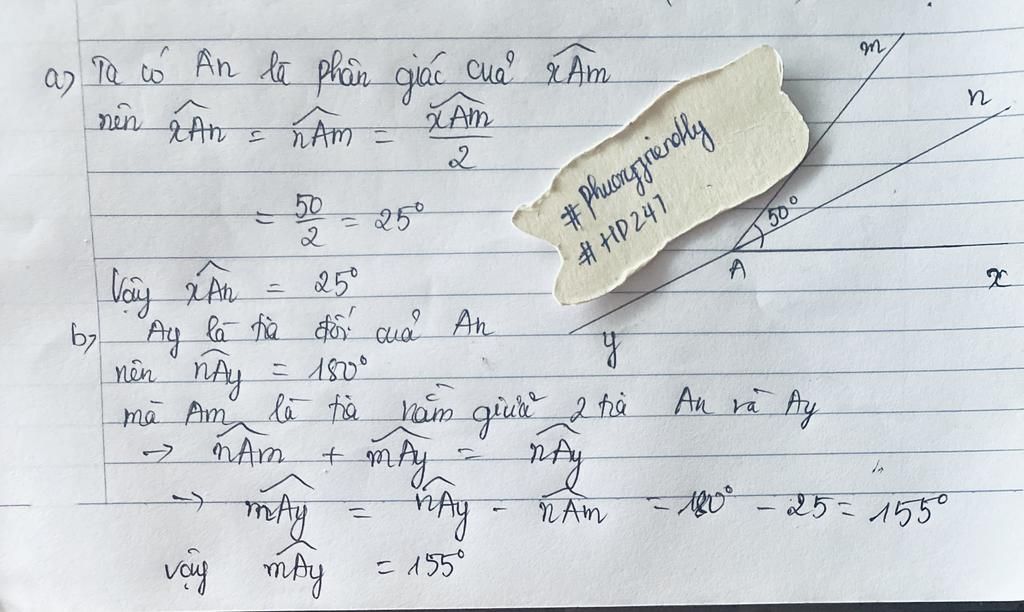 a) Ta có An là phân giác của xAm
nên xAn = nAm = xAm/2
= 50/2 = 25°
Vậy xAn = 25°
b) Ay là tia đối của An
nên nAy = 180°
mà Am là tia nằm giữa 2 tia An và Ay
→ nAm + mAy = nAy
→ mAy = nAy - nAm = 180° - 25 = 155°
vậy mAy = 155°
#phuongfriendly
#HD247
m
n
50°
A
x
y